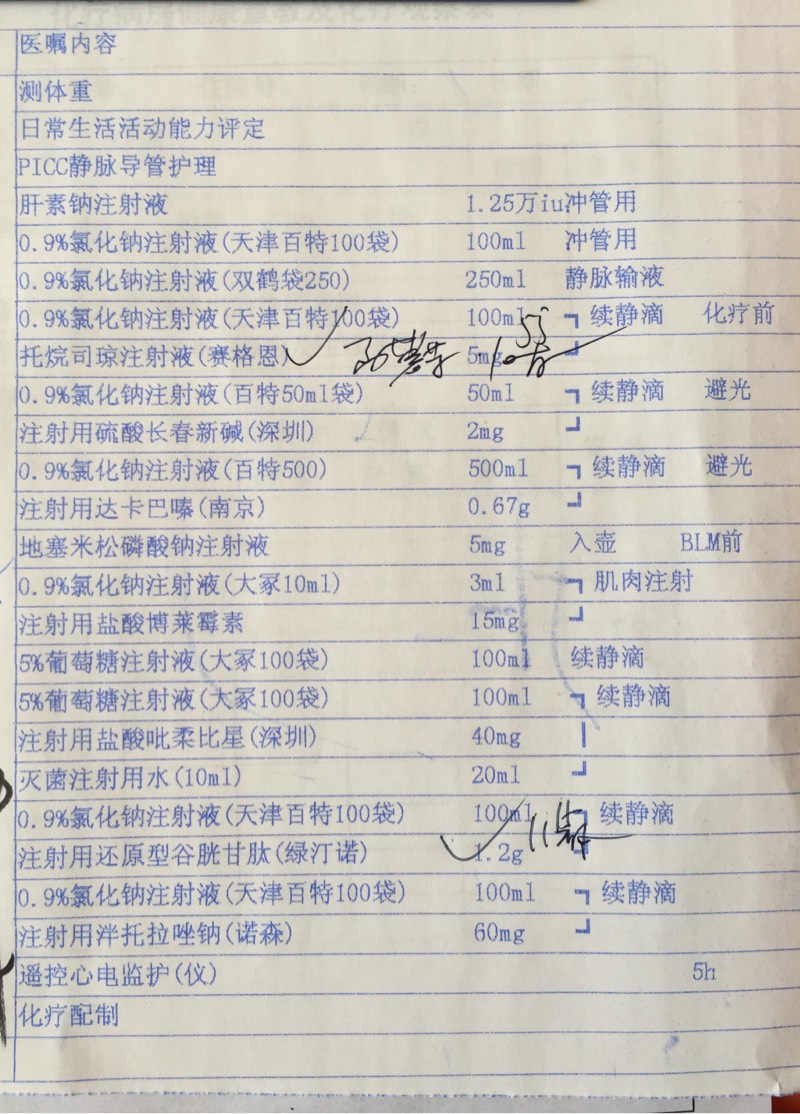 医嘱内容
测体重
日常生活活动能力评定
PICC静脉导管护理
肝素钠注射液 1.25万iu冲管用
0.9%氯化钠注射液(天津百特100袋) 100ml 冲管用
0.9%氯化钠注射液(双鹤袋250) 250ml 静脉输液
0.9%氯化钠注射液(天津百特100袋) 100ml ┓ 续静滴 化疗前
托烷司琼注射液(赛格恩) 5mg ┛
0.9%氯化钠注射液(百特50ml袋) 50ml ┓ 续静滴 避光
注射用硫酸长春新碱(深圳) 2mg ┛
0.9%氯化钠注射液(百特500) 500ml ┓ 续静滴 避光
注射用达卡巴嗪(南京) 0.67g ┛
地塞米松磷酸钠注射液 5mg 入壶 BLM前
0.9%氯化钠注射液(大冢10ml) 3ml ┓ 肌肉注射
注射用盐酸博莱霉素 15mg ┛
5%葡萄糖注射液(大冢100袋) 100ml 续静滴
5%葡萄糖注射液(大冢100袋) 100ml ┓ 续静滴
注射用盐酸吡柔比星(深圳) 40mg ┃
灭菌注射用水(10ml) 20ml ┛
0.9%氯化钠注射液(天津百特100袋) 100ml ┓ 续静滴
注射用还原型谷胱甘肽(绿汀诺) 1.2g ┛
0.9%氯化钠注射液(天津百特100袋) 100ml ┓ 续静滴
注射用泮托拉唑钠(诺森) 60mg ┛
遥控心电监护(仪) 5h
化疗配制